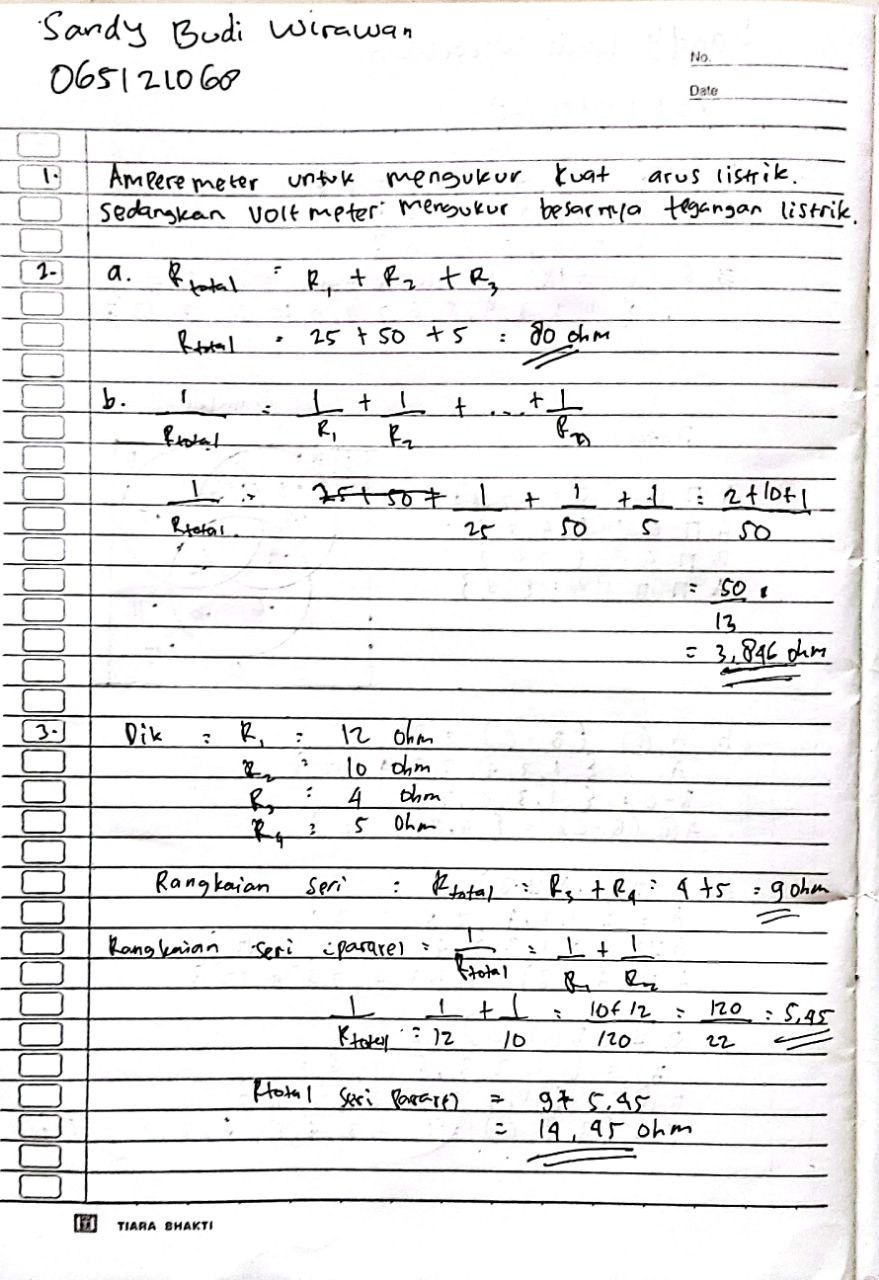 Sandy Budi Wirawan
065121060
No.
Date
1. Amperemeter untuk mengukur kuat arus listrik.
sedangkan voltmeter mengukur besarnya tegangan listrik.
2. a. Rtotal = R1 + R2 + R3
Rtotal = 25 + 50 + 5 = 80 ohm
b. 1/Rtotal = 1/R1 + 1/R2 + ... + 1/Rn
1/Rtotal = 1/25 + 1/50 + 1/5 = 2+10+1/50
= 50/13
= 3,846 ohm
3. Dik = R1 = 12 ohm
R2 = 10 ohm
R3 = 4 ohm
R4 = 5 ohm
Rangkaian seri = Rtotal = R3 + R4 = 4 + 5 = 9 ohm
Rangkaian seri pararel = 1/Rtotal = 1/R1 + 1/R2
1/Rtotal = 1/12 + 1/10 = 10+12/120 = 120/22 = 5,45
Rtotal seri pararel = 9+ 5,45
= 14,45 ohm
TIARA BHAKTI